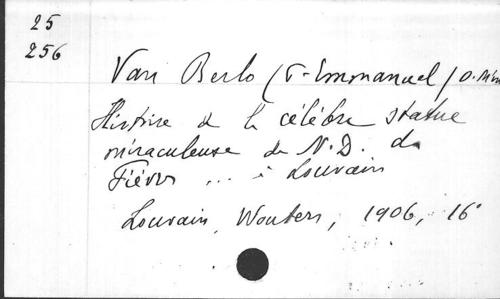 25
256
Van Berlo (F. Emmanuel) O. Min
Histoire de la célèbre statue
miraculeuse de N.D. de
Fièvres ... à Louvain
Louvain, Wouters, 1906, 16°